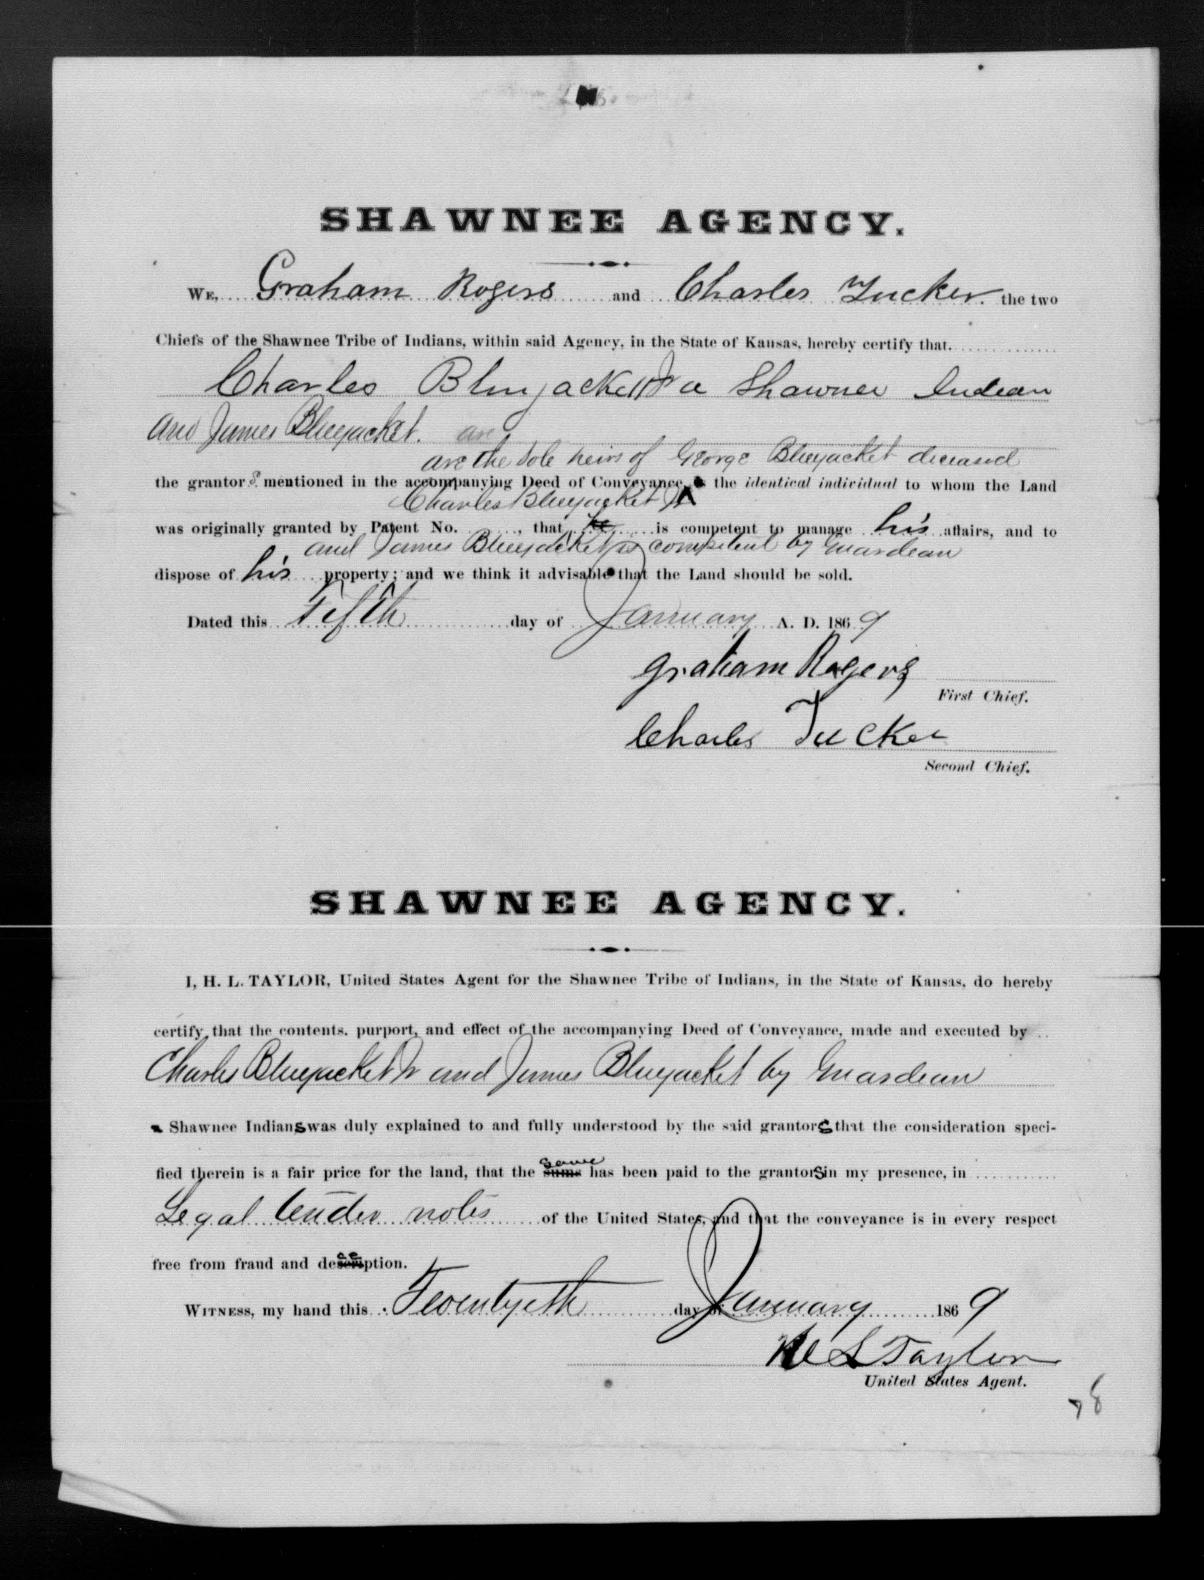 SHAWNEE AGENCY.
WE, Graham Rogers and Charles Tucker the two
Chiefs of the Shawnee Tribe of Indians, within said Agency, in the State of Kansas, hereby certify that
Charles Bluejacket Jr a Shawnee Indian
and James Bluejacket. are
are the sole heirs of George Bluejacket deceased
the grantors mentioned in the accompanying Deed of Conveyance, the identical individual to whom the Land
Charles Bluejacket Jr
was originally granted by Patent No. , that he is competent to manage his affairs, and to
and James Bluejacket is competent by Guardean
dispose of his property; and we think it advisable that the Land should be sold.
Dated this Fifth day of January A. D. 1869
Graham Rogers
First Chief.
Charles Tucker
Second Chief.
SHAWNEE AGENCY.
I, H. L. TAYLOR, United States Agent for the Shawnee Tribe of Indians, in the State of Kansas, do hereby
certify that the contents, purport, and effect of the accompanying Deed of Conveyance, made and executed by
Charles Bluejacket Jr and James Bluejacket by Guardean
a Shawnee Indians was duly explained to and fully understood by the said grantors that the consideration speci-
same
fied therein is a fair price for the land, that the sums has been paid to the grantors in my presence, in
Legal tender notes of the United States, and that the conveyance is in every respect
free from fraud and deception.
WITNESS, my hand this Twentyeth day of January 1869
H L Taylor
United States Agent.